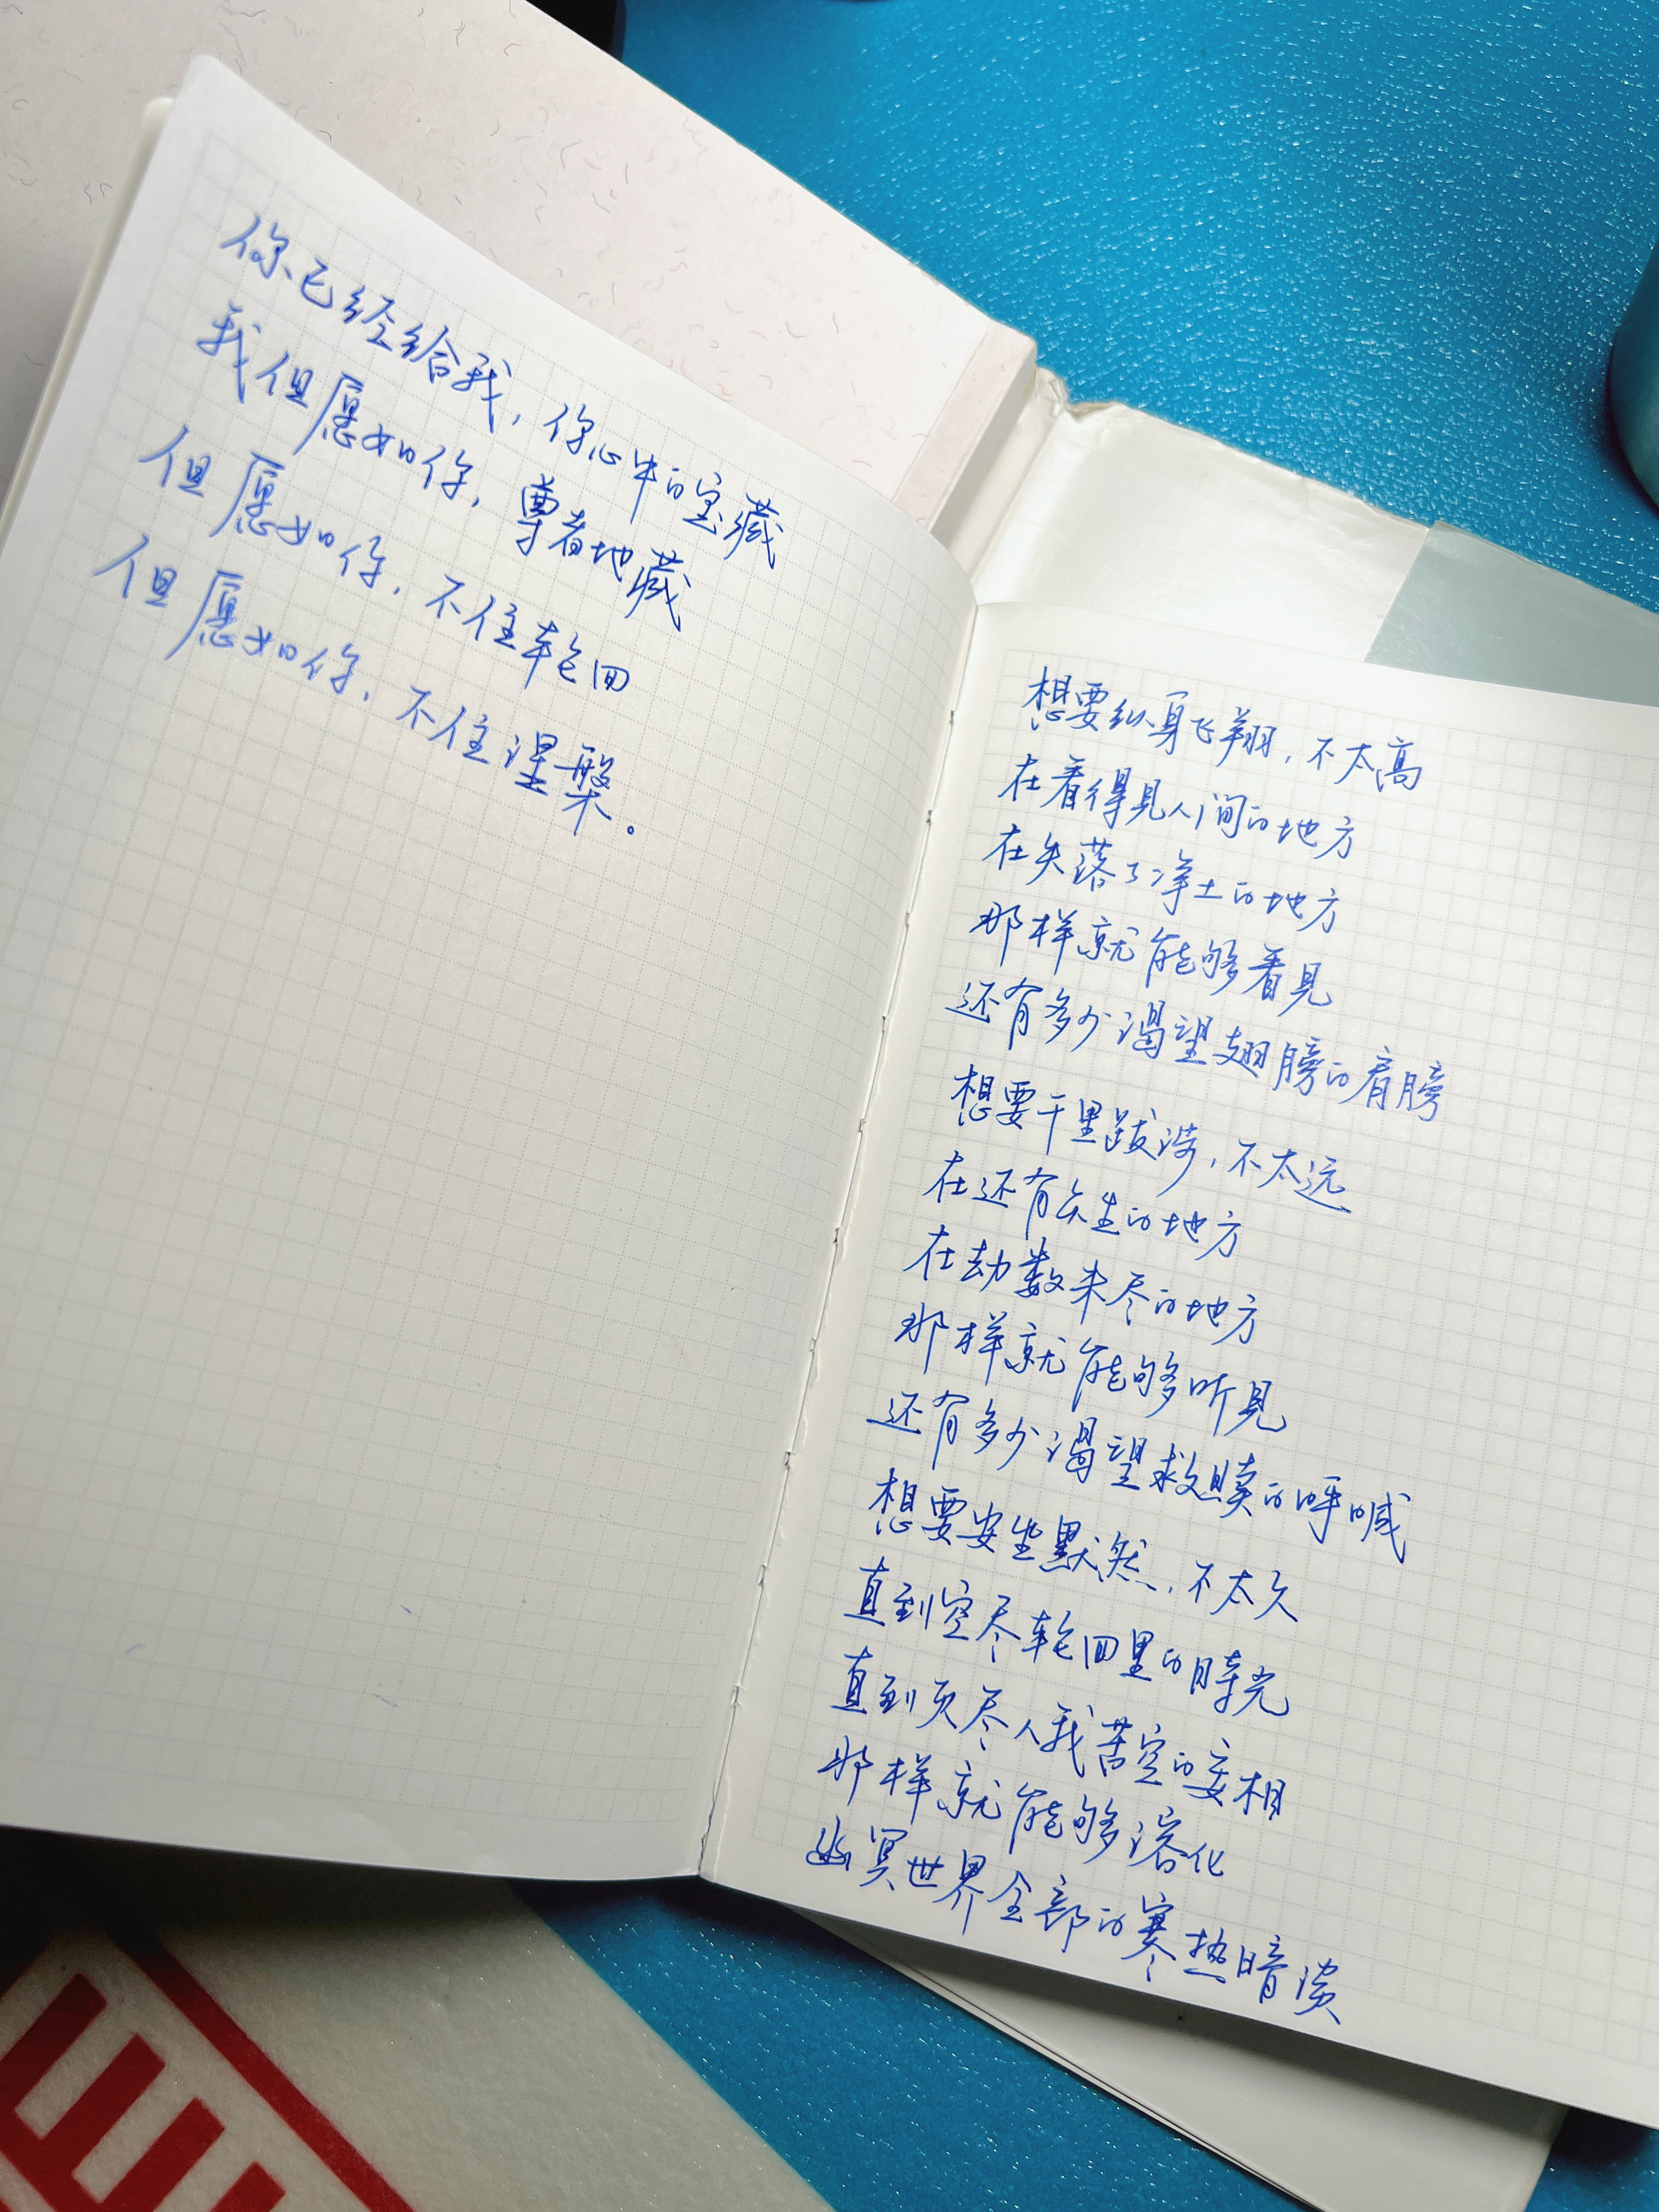 你已经给我，你心中的宝藏
我但愿如你，尊者地藏
但愿如你，不住轮回
但愿如你，不住涅槃。
想要纵身飞翔，不太高
在看得见人间的地方
在失落了净土的地方
那样就能够看见
还有多少渴望翅膀的肩膀
想要千里跋涉，不太远
在还有众生的地方
在劫数未尽的地方
那样就能够听见
还有多少渴望救赎的呼喊
想要安坐默然，不太久
直到空尽轮回里的時光
直到灰尽人我苦空的妄相
那样就能够溶化
幽冥世界全部的寒热暗淡